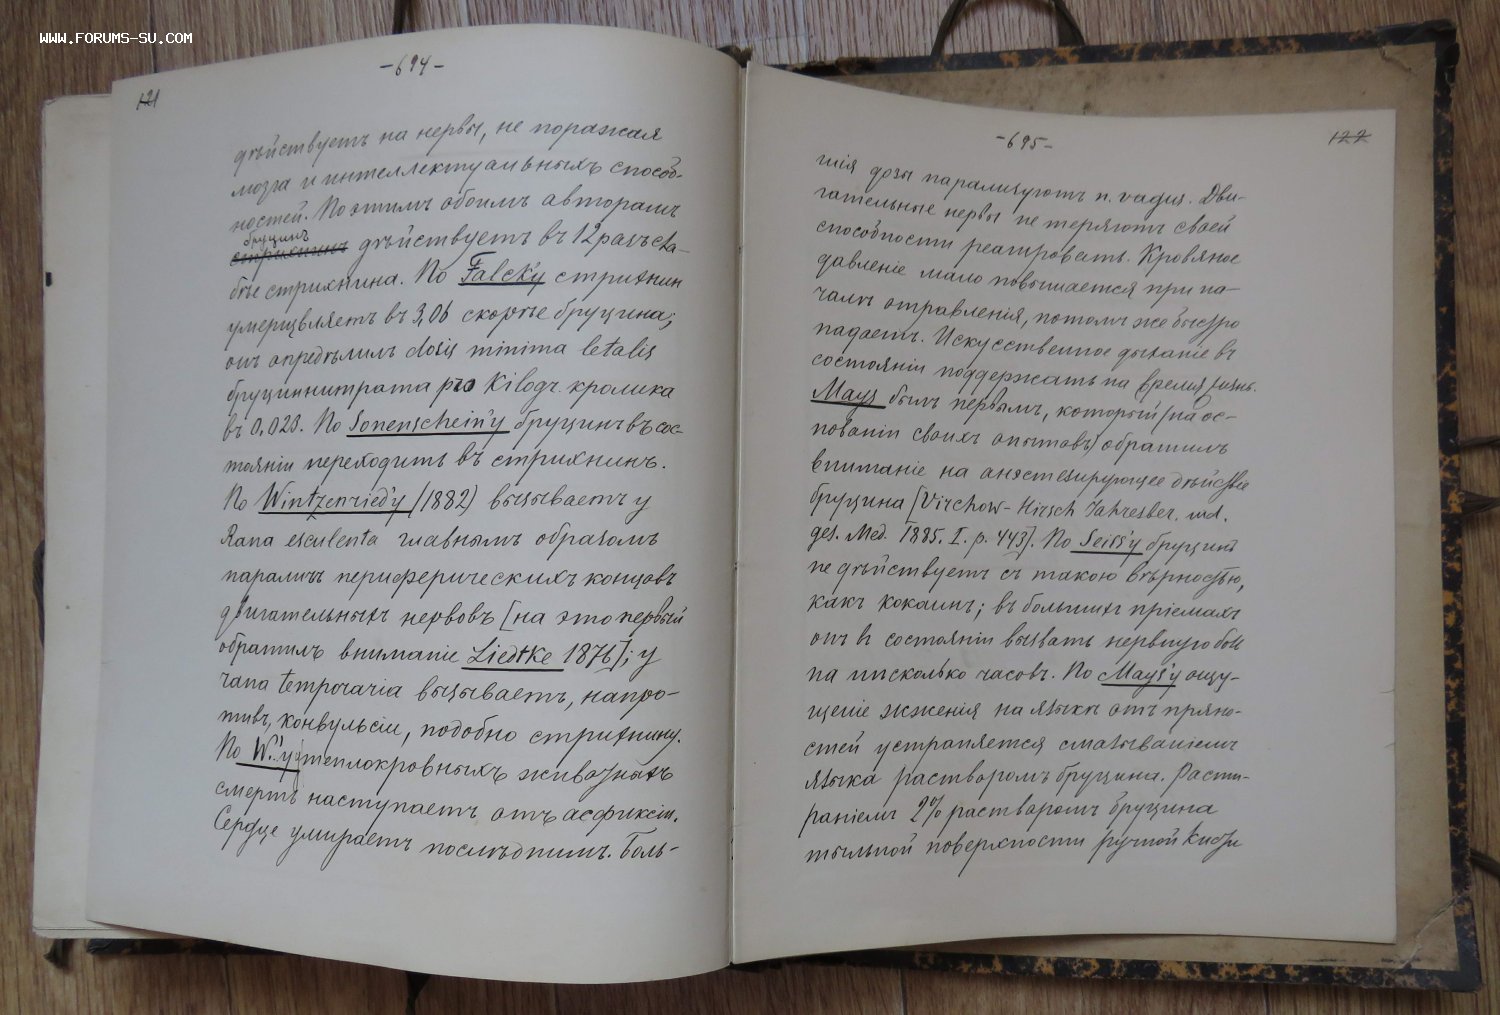 WWW.FORUMS-SU.COM
-694-
121
дѣйствуетъ на нервы, не поражая
мозга и интеллектуальныхъ способ-
ностей. По этимъ обоимъ авторамъ
бруцинъ
стрихнинъ дѣйствуетъ въ 12 разъ сла-
бѣе стрихнина. По Falck'у стрихнин
умерщвляетъ въ 3,06 скорѣе бруцина;
онъ опредѣлилъ dosis minima letalis
бруциннитрата pro Kilogr. кролика
въ 0,023. По Sonenschein'у бруцинъ въ сос-
тояніи переходить въ стрихнинъ.
По Wintzenried'у (1882) вызываетъ у
Rana esculenta главнымъ образомъ
параличъ периферическихъ концовъ
двигательныхъ нервовъ [на это первый
обратилъ вниманіе Liedtke 1876]; у
rana temporaria вызываетъ, напро-
тивъ, конвульсіи, подобно стрихнину.
По W.'у у теплокровныхъ животныхъ
смерть наступаетъ отъ асфиксіи.
Сердце умираетъ послѣднимъ. Боль-
-695-
122
шія дозы парализуютъ n. vagus. Дви-
гательные нервы не теряютъ своей
способности реагировать. Кровяное
давленіе мало повышается при на-
чалѣ отравленія, потомъ же быстро
падаетъ. Искусственное дыханіе въ
состояніи поддержать на время жизнь.
Mays былъ первымъ, который (на ос-
нованіи своихъ опытовъ) обратилъ
вниманіе на анэстезирующее дѣйствіе
бруцина [Virchow-Hirsch Jahresber. ud.
ges. Med. 1885. I. p. 443]. По Seiss'у бруцинъ
не дѣйствуетъ съ такою вѣрностью,
какъ кокаинъ; въ большихъ пріемахъ
онъ въ состояніи вызвать нервную боль
на нѣсколько часовъ. По Mays'у ощу-
щеніе жженія на языкѣ отъ пряно-
стей устраняется смазываніемъ
языка растворомъ бруцина. Расти-
раніемъ 2% растворомъ бруцина
тыльной поверхности ручной кисти